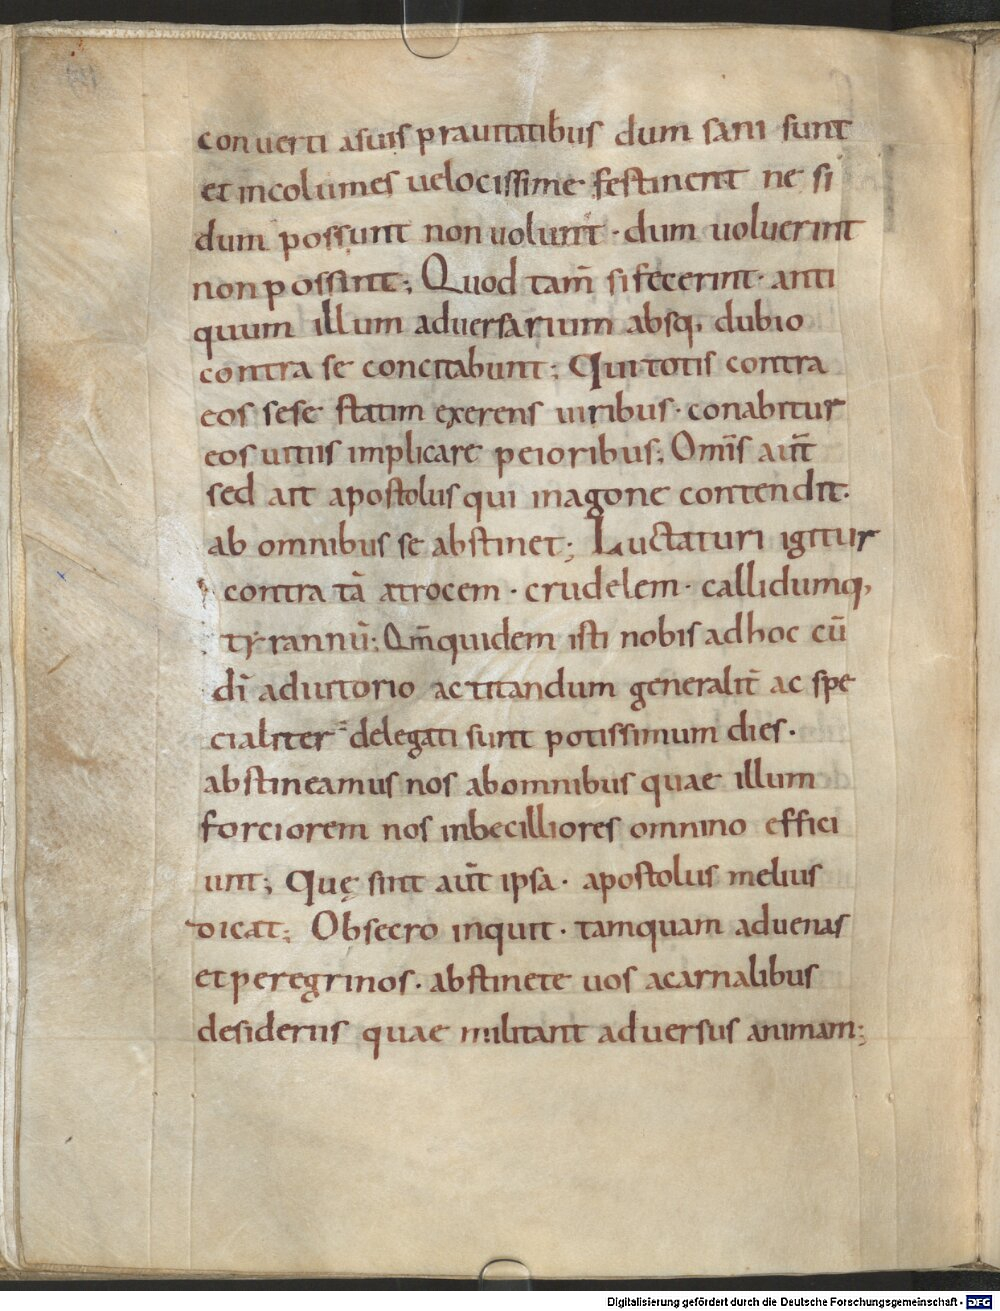 conuerti asuis prauitatibus dum sani sunt
et incolumes uelocissime festinent ne si
dum possunt non uolunt · dum uoluerint
non possint; Quod tam̄ si fecerint · anti
quum illum aduersarium absq, dubio
contra se concitabunt; Qui totis contra
eos sese statim exerens uiribus · conabitur
eos uitiis implicare peioribus; Om̄is aut̄
sed ait apostolus qui inagone contendit.
ab omnibus se abstinet; Luctaturi igitur
contra tā atrocem · crudelem · callidumq,
tyrannū; Qm̄quidem isti nobis adhoc cū
dī adiutorio actitandum generalit̄ ac spe
cialiter delegati sunt potissimum dies ·
abstineamus nos abomnibus quae illum
forciorem nos inbecilliores omnino effici
unt; Quę sint aut̄ ipsa · apostolus melius
dicat; Obsecro inquit · tamquam aduenas
et peregrinos · abstinete uos acarnalibus
desideriis quae militant aduersus animam;
Digitalisierung gefördert durch die Deutsche Forschungsgemeinschaft - DFG